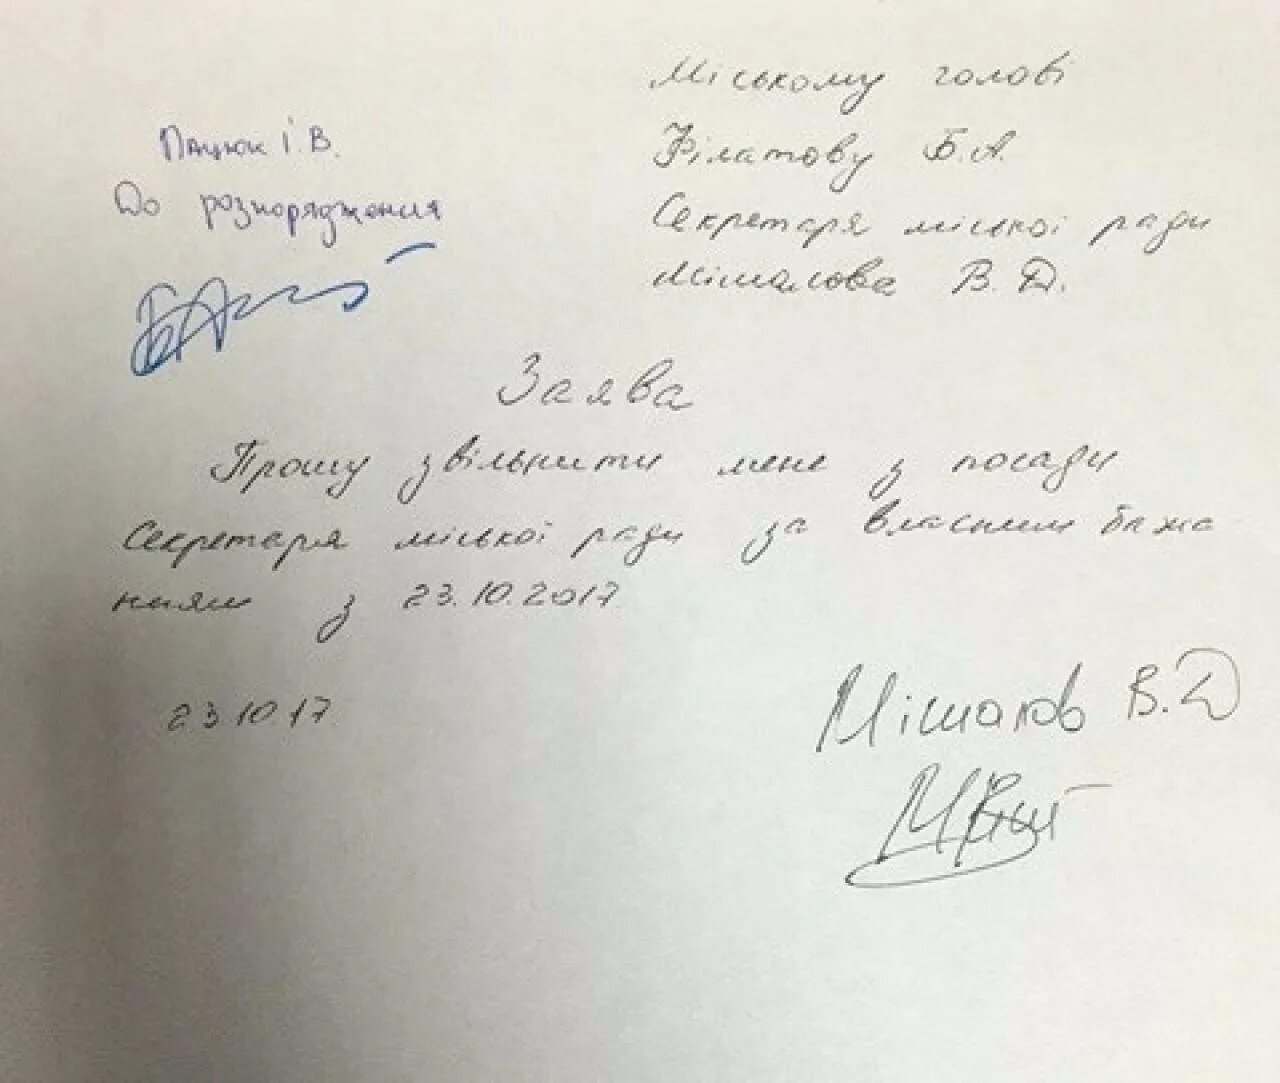 Міському голові
Філатову Б.А.
Секретаря міської ради
Мішалова В.Д.
Пацюк І.В.
До розпорядження
Заява
Прошу звільнити мене з посади
Секретаря міської ради за власним бажа
нням з 23.10.2017
23 10 17
Мішалов В.Д